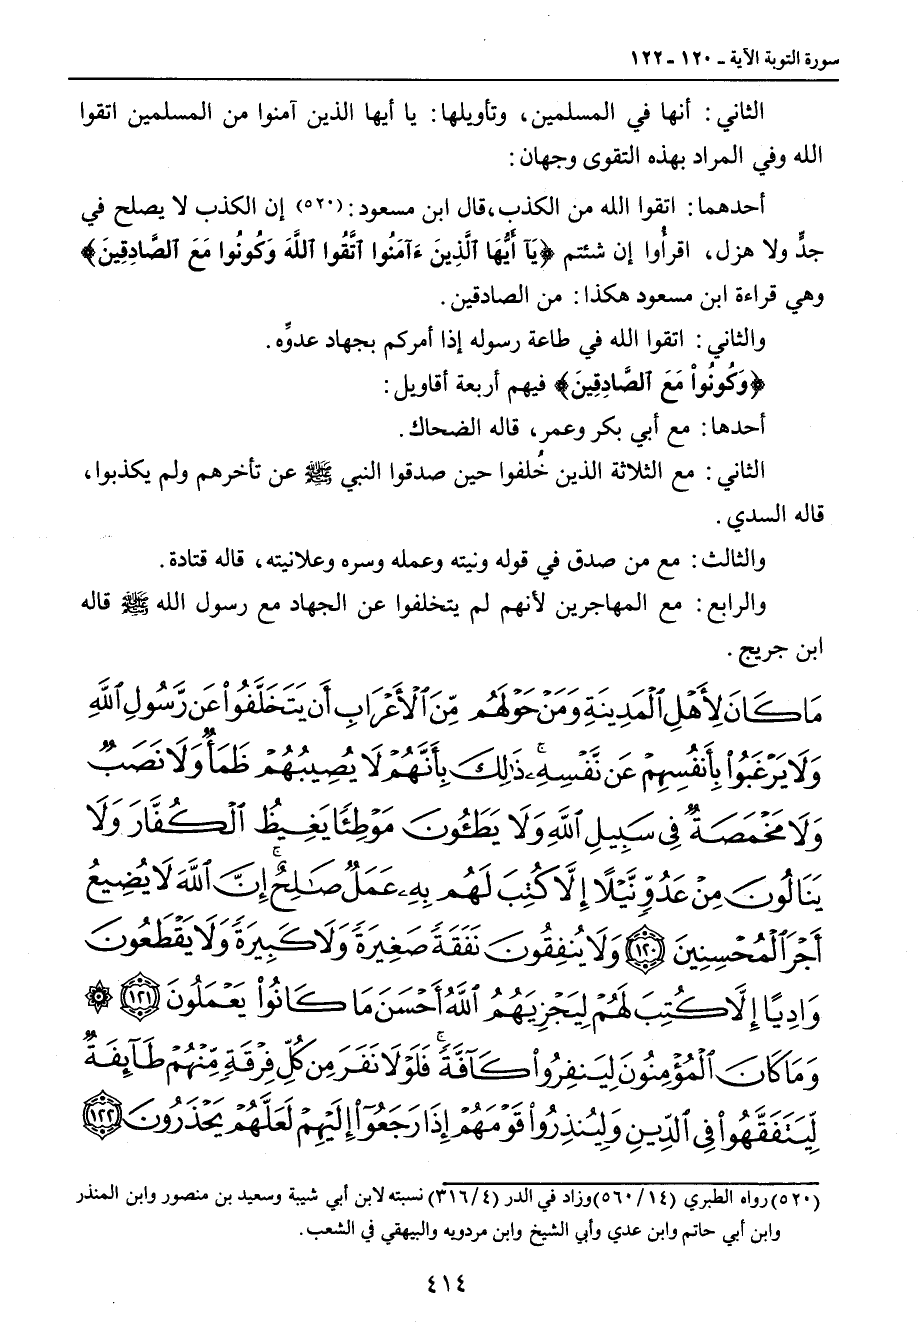 سورة التوبة الآية ـ ١٢٠ ـ ١٢٢
الثاني: أنها في المسلمين، وتأويلها: يا أيها الذين آمنوا من المسلمين اتقوا
الله وفي المراد بهذه التقوى وجهان:
أحدهما: اتقوا الله من الكذب، قال ابن مسعود: (٥٢٠) إن الكذب لا يصلح في
جدٍّ ولا هزل، اقرأُوا إن شئتم ﴿يَآ أَيُّهَا ٱلَّذِينَ ءَآمَنُوا ٱتَّقُوا ٱللَّهَ وَكُونُوا مَعَ ٱلصَّادِقِينَ﴾
وهي قراءة ابن مسعود هكذا: من الصادقين.
والثاني: اتقوا الله في طاعة رسوله إذا أمركم بجهاد عدوِّه.
﴿وَكُونُواْ مَعَ ٱلصَّادِقِينَ﴾ فيهم أربعة أقاويل:
أحدها: مع أبي بكر وعمر، قاله الضحاك.
الثاني: مع الثلاثة الذين خُلفوا حين صدقوا النبي ﷺ عن تأخرهم ولم يكذبوا،
قاله السدي.
والثالث: مع من صدق في قوله ونيته وعمله وسره وعلانيته، قاله قتادة.
والرابع: مع المهاجرين لأنهم لم يتخلفوا عن الجهاد مع رسول الله ﷺ قاله
ابن جريج.
مَا كَانَ لِأَهْلِ ٱلْمَدِينَةِ وَمَنْ حَوْلَهُم مِّنَ ٱلْأَعْرَابِ أَن يَتَخَلَّفُواْ عَن رَّسُولِ ٱللَّهِ
وَلَا يَرْغَبُواْ بِأَنفُسِهِمْ عَن نَّفْسِهِۦ ۚ ذَٰلِكَ بِأَنَّهُمْ لَا يُصِيبُهُمْ ظَمَأٌ وَلَا نَصَبٌ
وَلَا مَخْمَصَةٌ فِى سَبِيلِ ٱللَّهِ وَلَا يَطَـُٔونَ مَوْطِئًا يَغِيظُ ٱلْكُفَّارَ وَلَا
يَنَالُونَ مِنْ عَدُوٍّ نَّيْلًا إِلَّا كُتِبَ لَهُم بِهِۦ عَمَلٌ صَـٰلِحٌ ۚ إِنَّ ٱللَّهَ لَا يُضِيعُ
أَجْرَ ٱلْمُحْسِنِينَ ١٢٠ وَلَا يُنفِقُونَ نَفَقَةً صَغِيرَةً وَلَا كَبِيرَةً وَلَا يَقْطَعُونَ
وَادِيًا إِلَّا كُتِبَ لَهُمْ لِيَجْزِيَهُمُ ٱللَّهُ أَحْسَنَ مَا كَانُواْ يَعْمَلُونَ ١٢١ ۞
وَمَا كَانَ ٱلْمُؤْمِنُونَ لِيَنفِرُواْ كَآفَّةً ۚ فَلَوْلَا نَفَرَ مِن كُلِّ فِرْقَةٍ مِّنْهُمْ طَآئِفَةٌ
لِّيَتَفَقَّهُواْ فِى ٱلدِّينِ وَلِيُنذِرُواْ قَوْمَهُمْ إِذَا رَجَعُوٓاْ إِلَيْهِمْ لَعَلَّهُمْ يَحْذَرُونَ ١٢٢
(٥٢٠) رواه الطبري (١٤/ ٥٦٠) وزاد في الدر (٤/ ٣١٦) نسبته لابن أبي شيبة وسعيد بن منصور وابن المنذر
وابن أبي حاتم وابن عدي وأبي الشيخ وابن مردويه والبيهقي في الشعب.
٤١٤